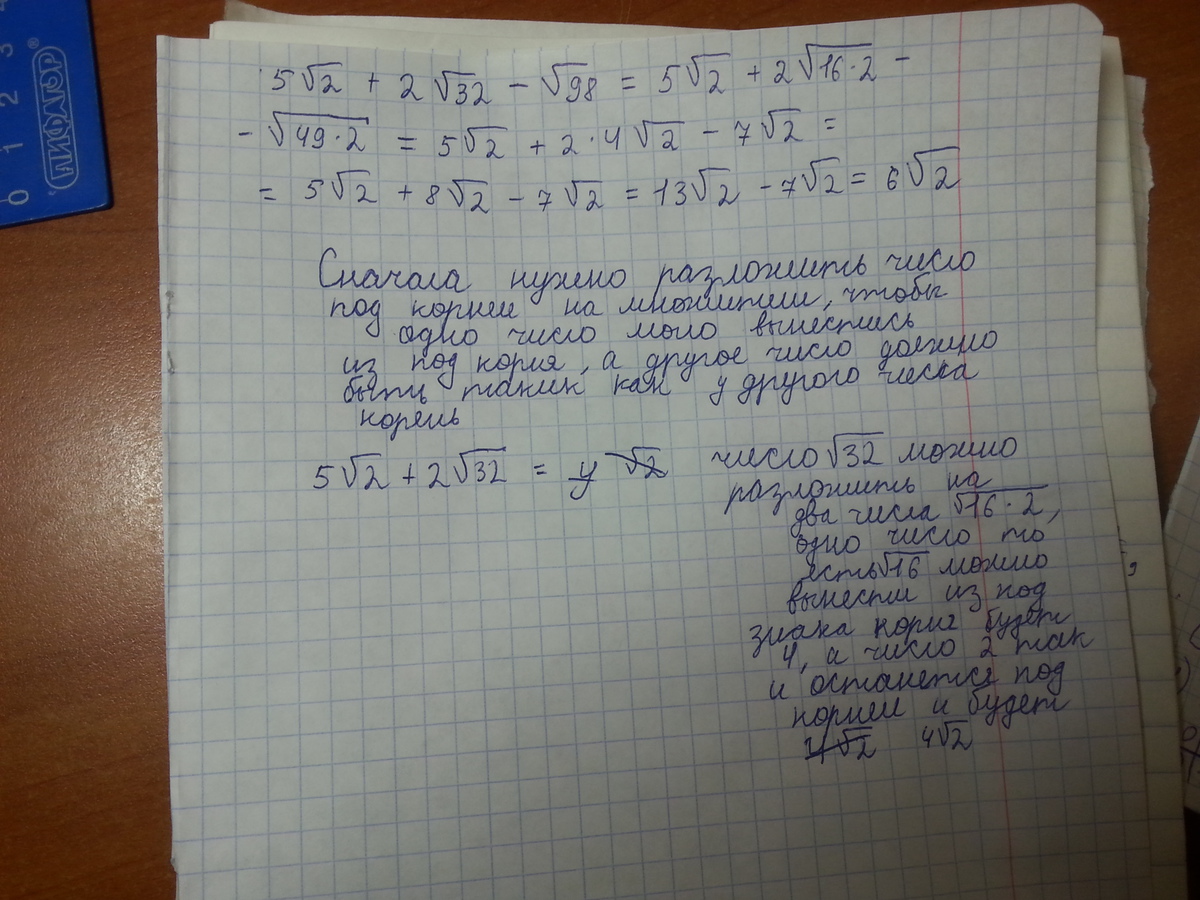 5√2 + 2√32 − √98 = 5√2 + 2√16·2 −
− √49·2 = 5√2 + 2·4√2 − 7√2 =
= 5√2 + 8√2 − 7√2 = 13√2 − 7√2 = 6√2
Сначала нужно разложить число
под корнем на множители, чтобы
одно число могло вынестись
из под корня, а другое число должно
быть таким как у другого числа
корень
5√2 + 2√32 =
число √32 можно
разложить на
два числа √16·2,
одно число то
есть √16 можно
вынести из под
знака
будет
4, а число 2 так
и останется под
корнем и будет
4√2
0 1 2 3 4
ПИФАГОР®